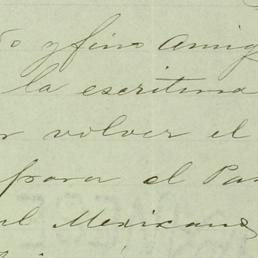 o y fino Amig
la escritura
r volver el
para el Pa
al Mexicano